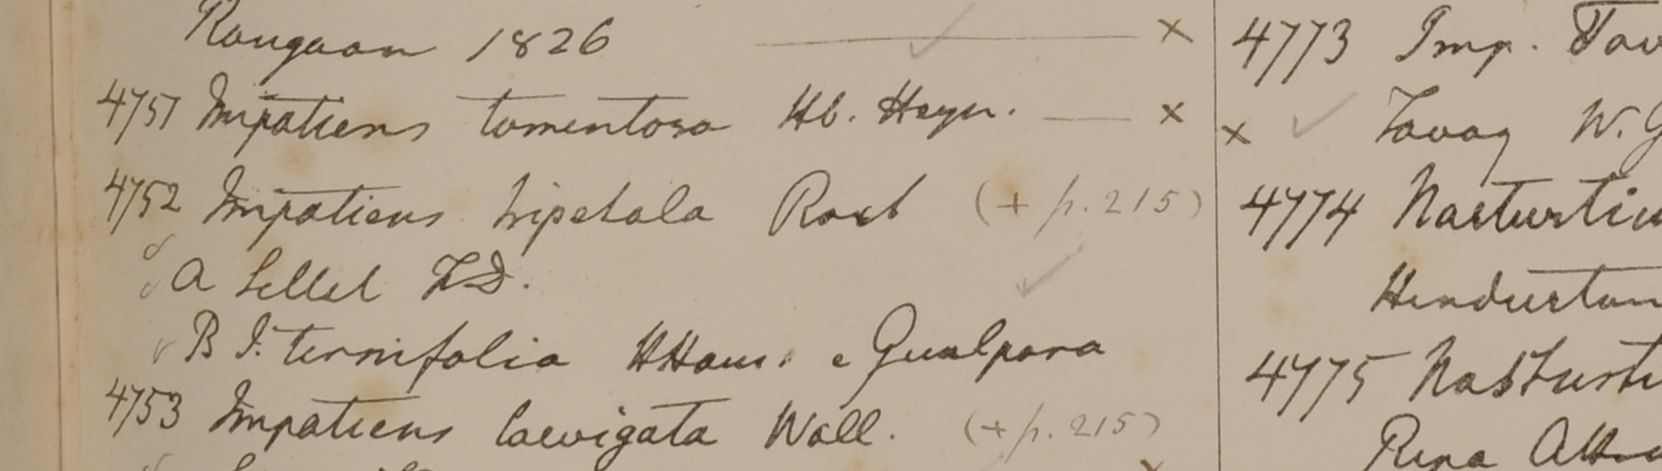 Rangoon 1826 x
4751 Impatiens tomentosa Hb. Heyn. x
4752 Impatiens tripetala Roxb (+ p. 215)
a Sillet FD.
B I. ternifolia HHam. e Gualpara
4753 Impatiens laevigata Wall. (+ p. 215)
4773 Imp. Tav
x Tavoy W. G
4774 Nasturtiu
Hindustan
4775 Nasturti
Ripa